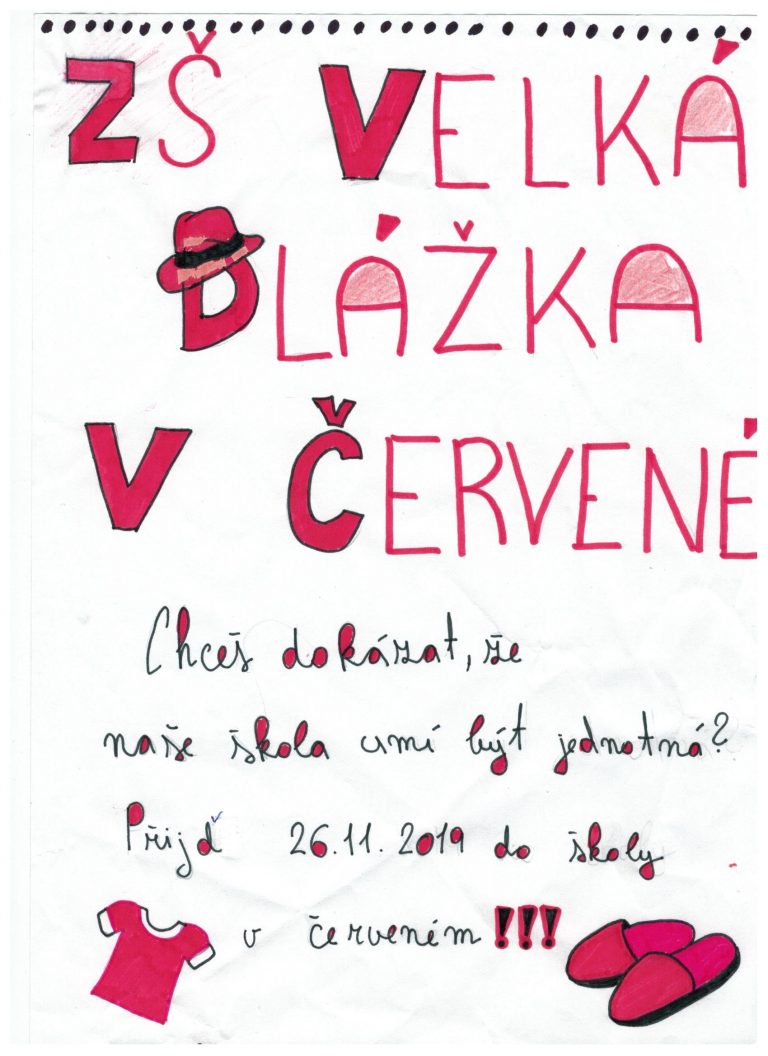 ZŠ VELKÁ
DLÁŽKA
V ČERVENÉ
Chceš dokázat, že
naše škola umí být jednotná?
Přijď 26.11. 2019 do školy
v červeném!!!